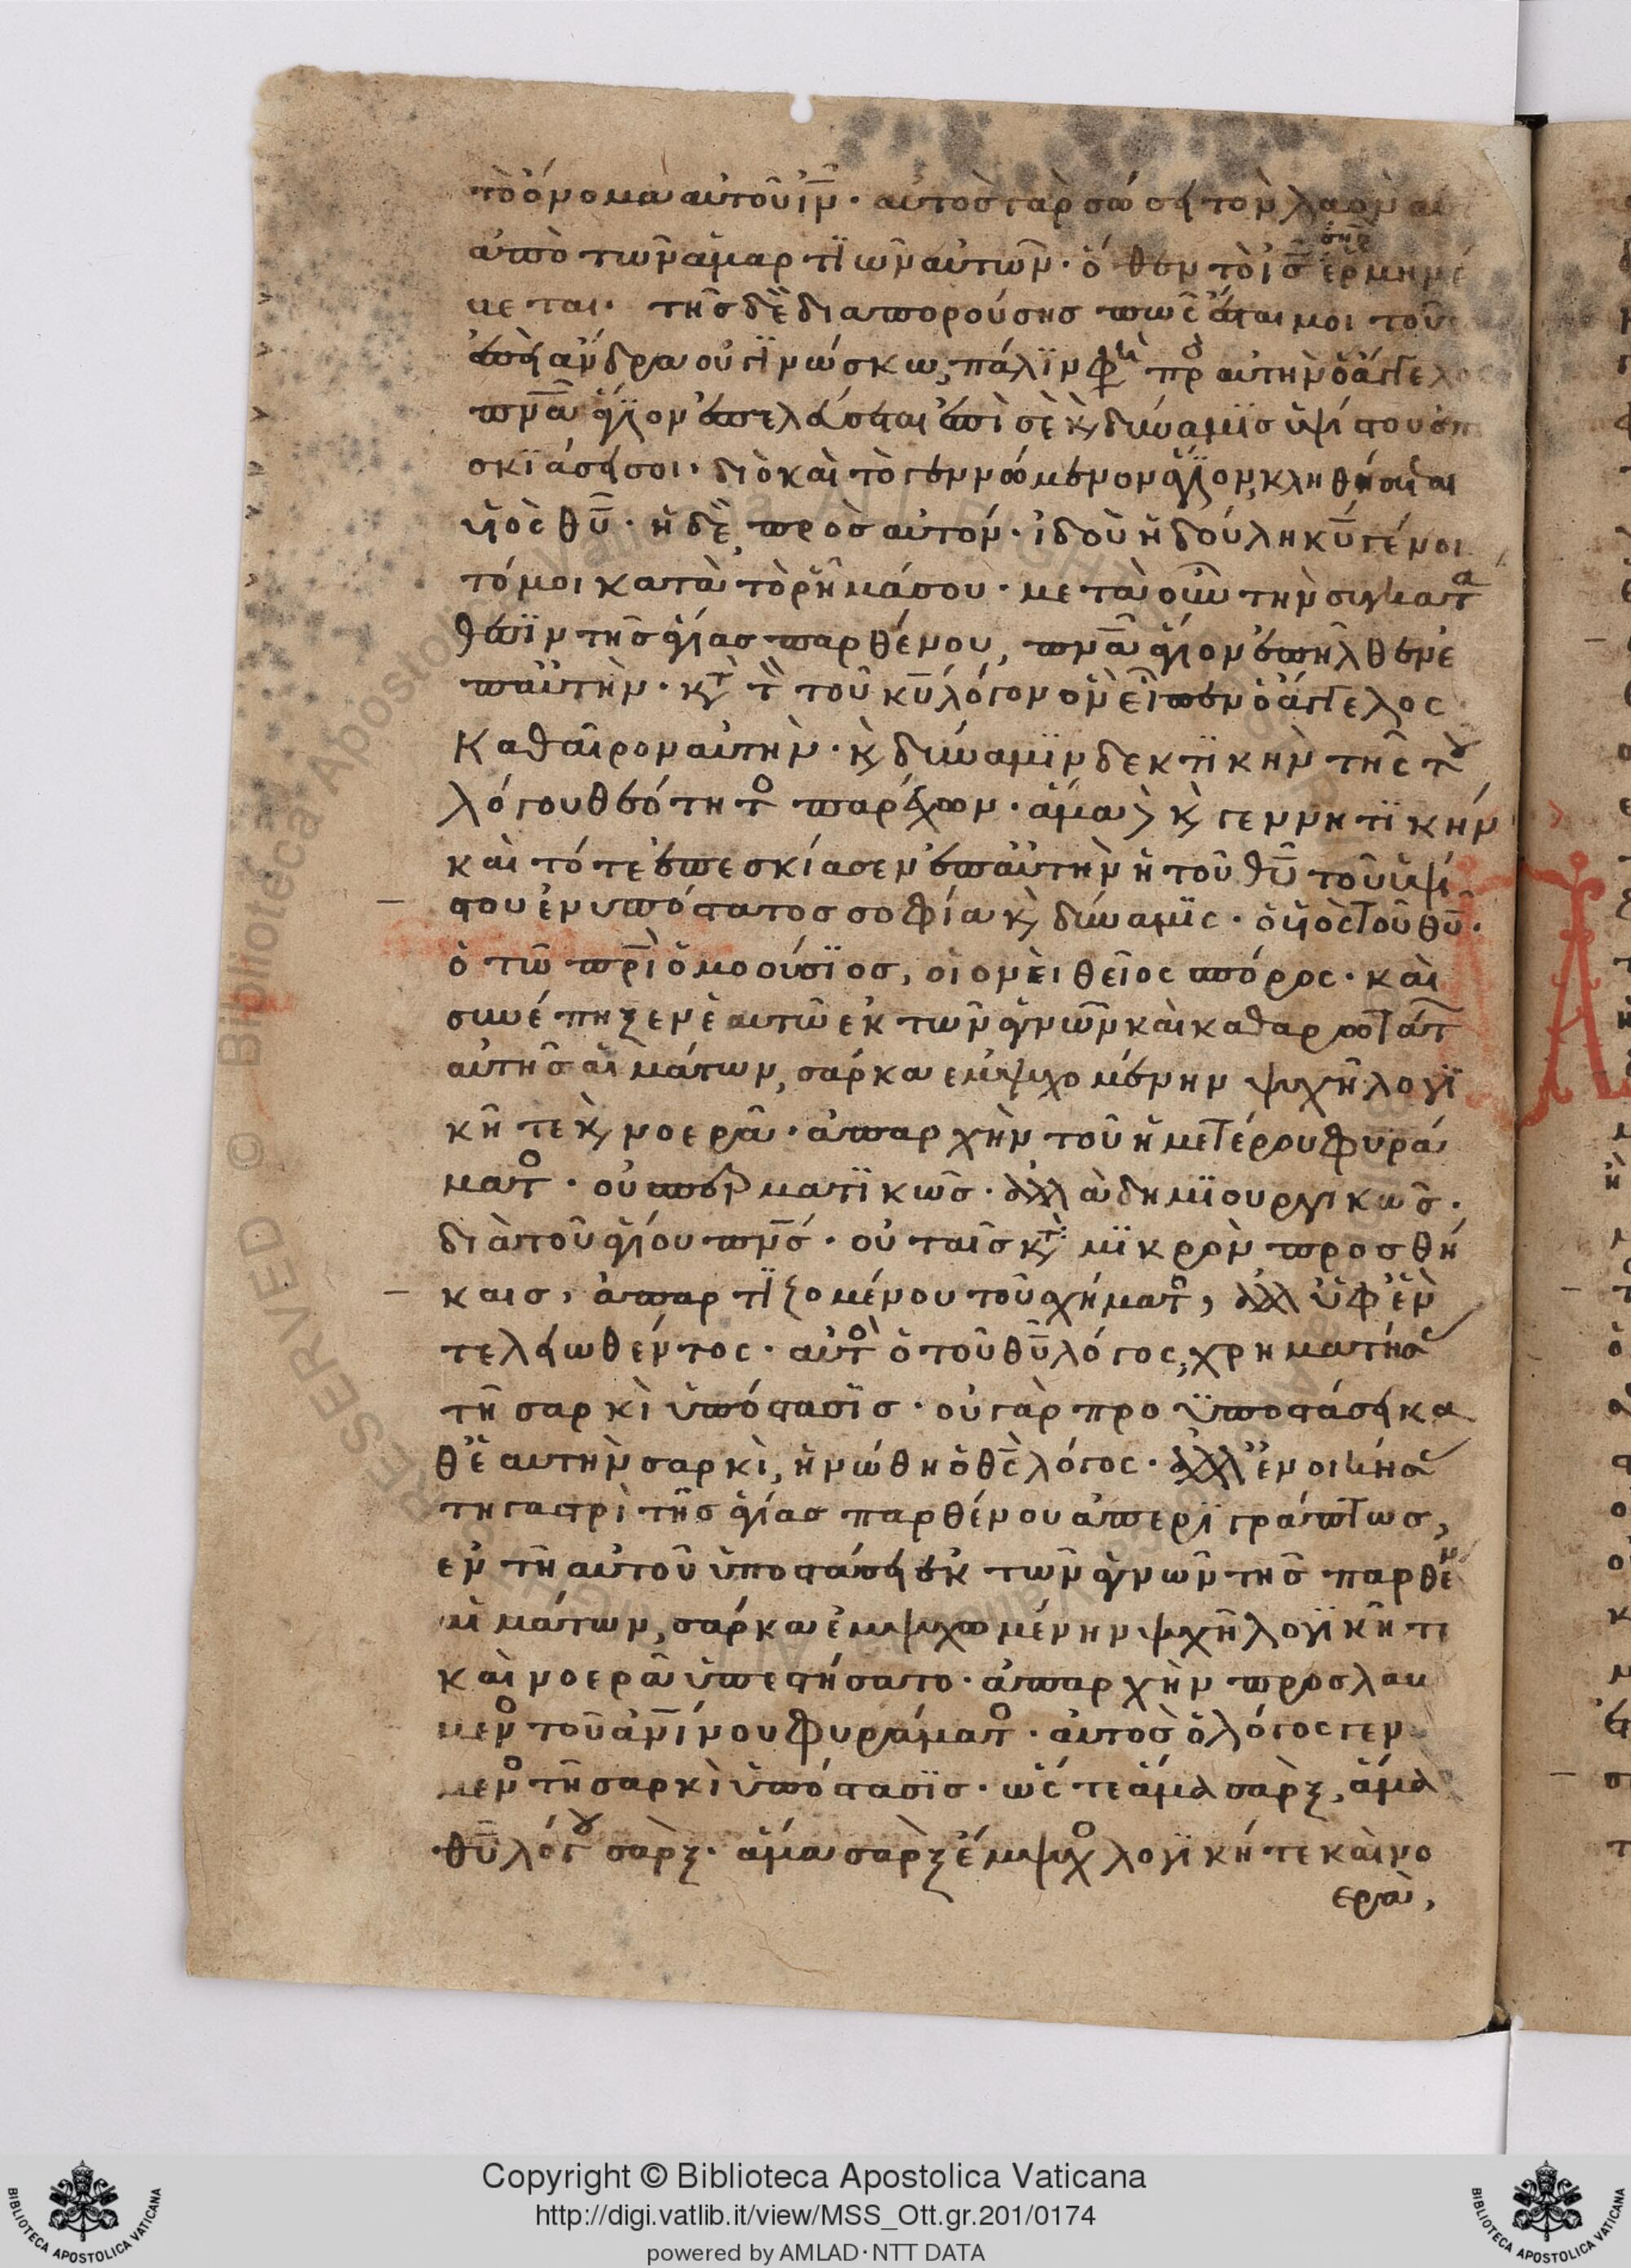 τὸ ὄνομα αὐτοῦ ἰν· αὐτὸς γὰρ σώσει τὸν λαὸν αυ
ἀπὸ τῶν ἁμαρτϊῶν αὐτῶν· ὅθεν τὸ ισ σηρ ἑρμηνέ
υεται· τῆς δὲ διαπορούσης πῶς ἔσται μοι τοῦ
ἐπεὶ ἄνδρα οὐ γϊνώσκω, πάλϊν φη πρὸ αὐτὴν ὁ ἄγγελος
πνα ἅγϊον ἐπελεύσεται ἐπὶ σὲ κ δύναμϊς ὑψίστου ἐπι
σκϊάσει σοι· διὸ καὶ τὸ γεννώμενον ἅγϊον, κληθήσεται
υἱὸς θυ· ἡ δὲ πρὸς αὐτόν· ἰδοὺ ἡ δούλη κυ γένοι
τό μοι κατὰ τὸ ῥῆμά σου· μετὰ οὖν τὴν συγκατα
θεσϊν τῆς ἁγίας παρθένου, πνα ἅγιον ἐπῆλθεν ἐ
π αὐτὴν· κτ τ τοῦ κυ λόγον ὃν εἶπεν ὁ ἄγγελος
Καθαῖρον αὐτὴν· κ δύναμϊν δεκτϊκὴν τῆς τοῦ
λόγου θεότητο παρέχων· ἅμα κ γεννητϊκήν
καὶ τότε ἐπεσκίασεν ἐπ αὐτὴν ἡ τοῦ θυ τοῦ ὑψί
στου ἐνυπόστατος σοφία κ δύναμϊς· ὁ υἱὸς τοῦ θυ·
ὁ τῶ πρι ὁμοούσϊος, οἱονεὶ θεῖος σπόρος· καὶ
συνέπηξεν ἑαυτῶ ἐκ τῶν ἁγνῶν καὶ καθαρωτάτ
αὐτῆς αἱμάτων, σάρκα ἐμψυχομένην ψυχῆ λογϊ
κῆ τε κ νοερᾶ· ἀπαρχὴν τοῦ ἡμετέρου φυρά
ματο· οὐ σπερματϊκῶς· ἀλλὰ δημϊουργικῶς·
διὰ τοῦ ἁγίου πνς· οὐ ταῖς κτ μϊκρὸν προσθή
καισ, ἀπαρτϊζομένου τοῦ σχήματο, ἀλλ ὑφ ἓν
τελειωθέντος· αὐτὸ ὁ τοῦ θυ λόγος, χρηματίσας
τῆ σαρκὶ ὑπόστασϊς· οὐ γὰρ προϋποστάσει κα
θ ἑαυτὴν σαρκὶ, ἡνώθη ὁ θς λόγος· ἀλλ ἐνοικήσας
τῆ γαστρὶ τῆς ἁγίας παρθένου ἀπερϊγράπτως,
ἐν τῆ αὐτοῦ ὑποστάσει ἐκ τῶν ἁγνῶν τῆς παρθεν
αἱμάτων, σάρκα ἐμψυχωμένην ψυχῆ λογϊκῆ τε
καὶ νοερᾶ ὑπεστήσατο· ἀπαρχὴν προσλαυ
μενο τοῦ ἀνίνου φυράματο· αὐτὸς ὁ λόγος γεν
μενο τῆ σαρκὶ ὑπόστασϊς· ὥς τε ἅμα σὰρξ, ἅμα
θυ λόγου σὰρξ· ἅμα σὰρξ ἔμψυχο λογϊκή τε καὶ νο
ερὰ,
Copyright © Biblioteca Apostolica Vaticana
http://digi.vatlib.it/view/MSS_Ott.gr.201/0174
powered by AMLAD·NTT DATA
BIBLIOTECA APOSTOLICA VATICANA
BIBLIOTECA APOSTOLICA VATICANA